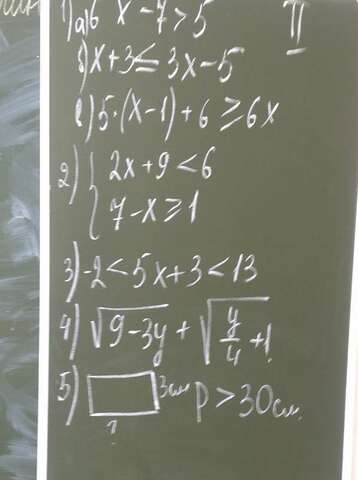 II
1) а) 6x-7>5
в) x+3≤3x-5
с) 5·(x-1)+6≥6x
2) { 2x+9<6
7-x≥1
3) -2<5x+3<13
4) √(9-3y) + √(y/4+1)
5) 3см P>30см.
?